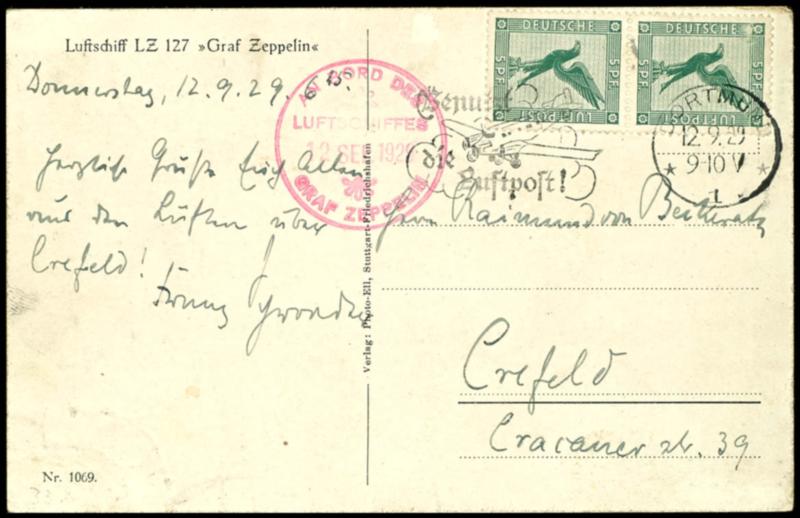 Luftschiff LZ 127 »Graf Zeppelin«
Donnerstag, 12.9.29.
Herzliche Grüße Euch Allen
aus den Lüften über
Crefeld!
Franz
AN BORD DES
LUFTSCHIFFES
12 SEP. 1929
GRAF ZEPPELIN
Verlag: Photo-Ell, Stuttgart-Friedrichshafen
DEUTSCHE
LUFTPOST
5 PF
5 PF
DEUTSCHE
LUFTPOST
5 PF
5 PF
Benutzt
die
Luftpost!
DORTMUND
12.9.29
9-10V
* 1 *
Herrn Raimund von Beckerath
Crefeld
Cracauer str. 39
Nr. 1069.